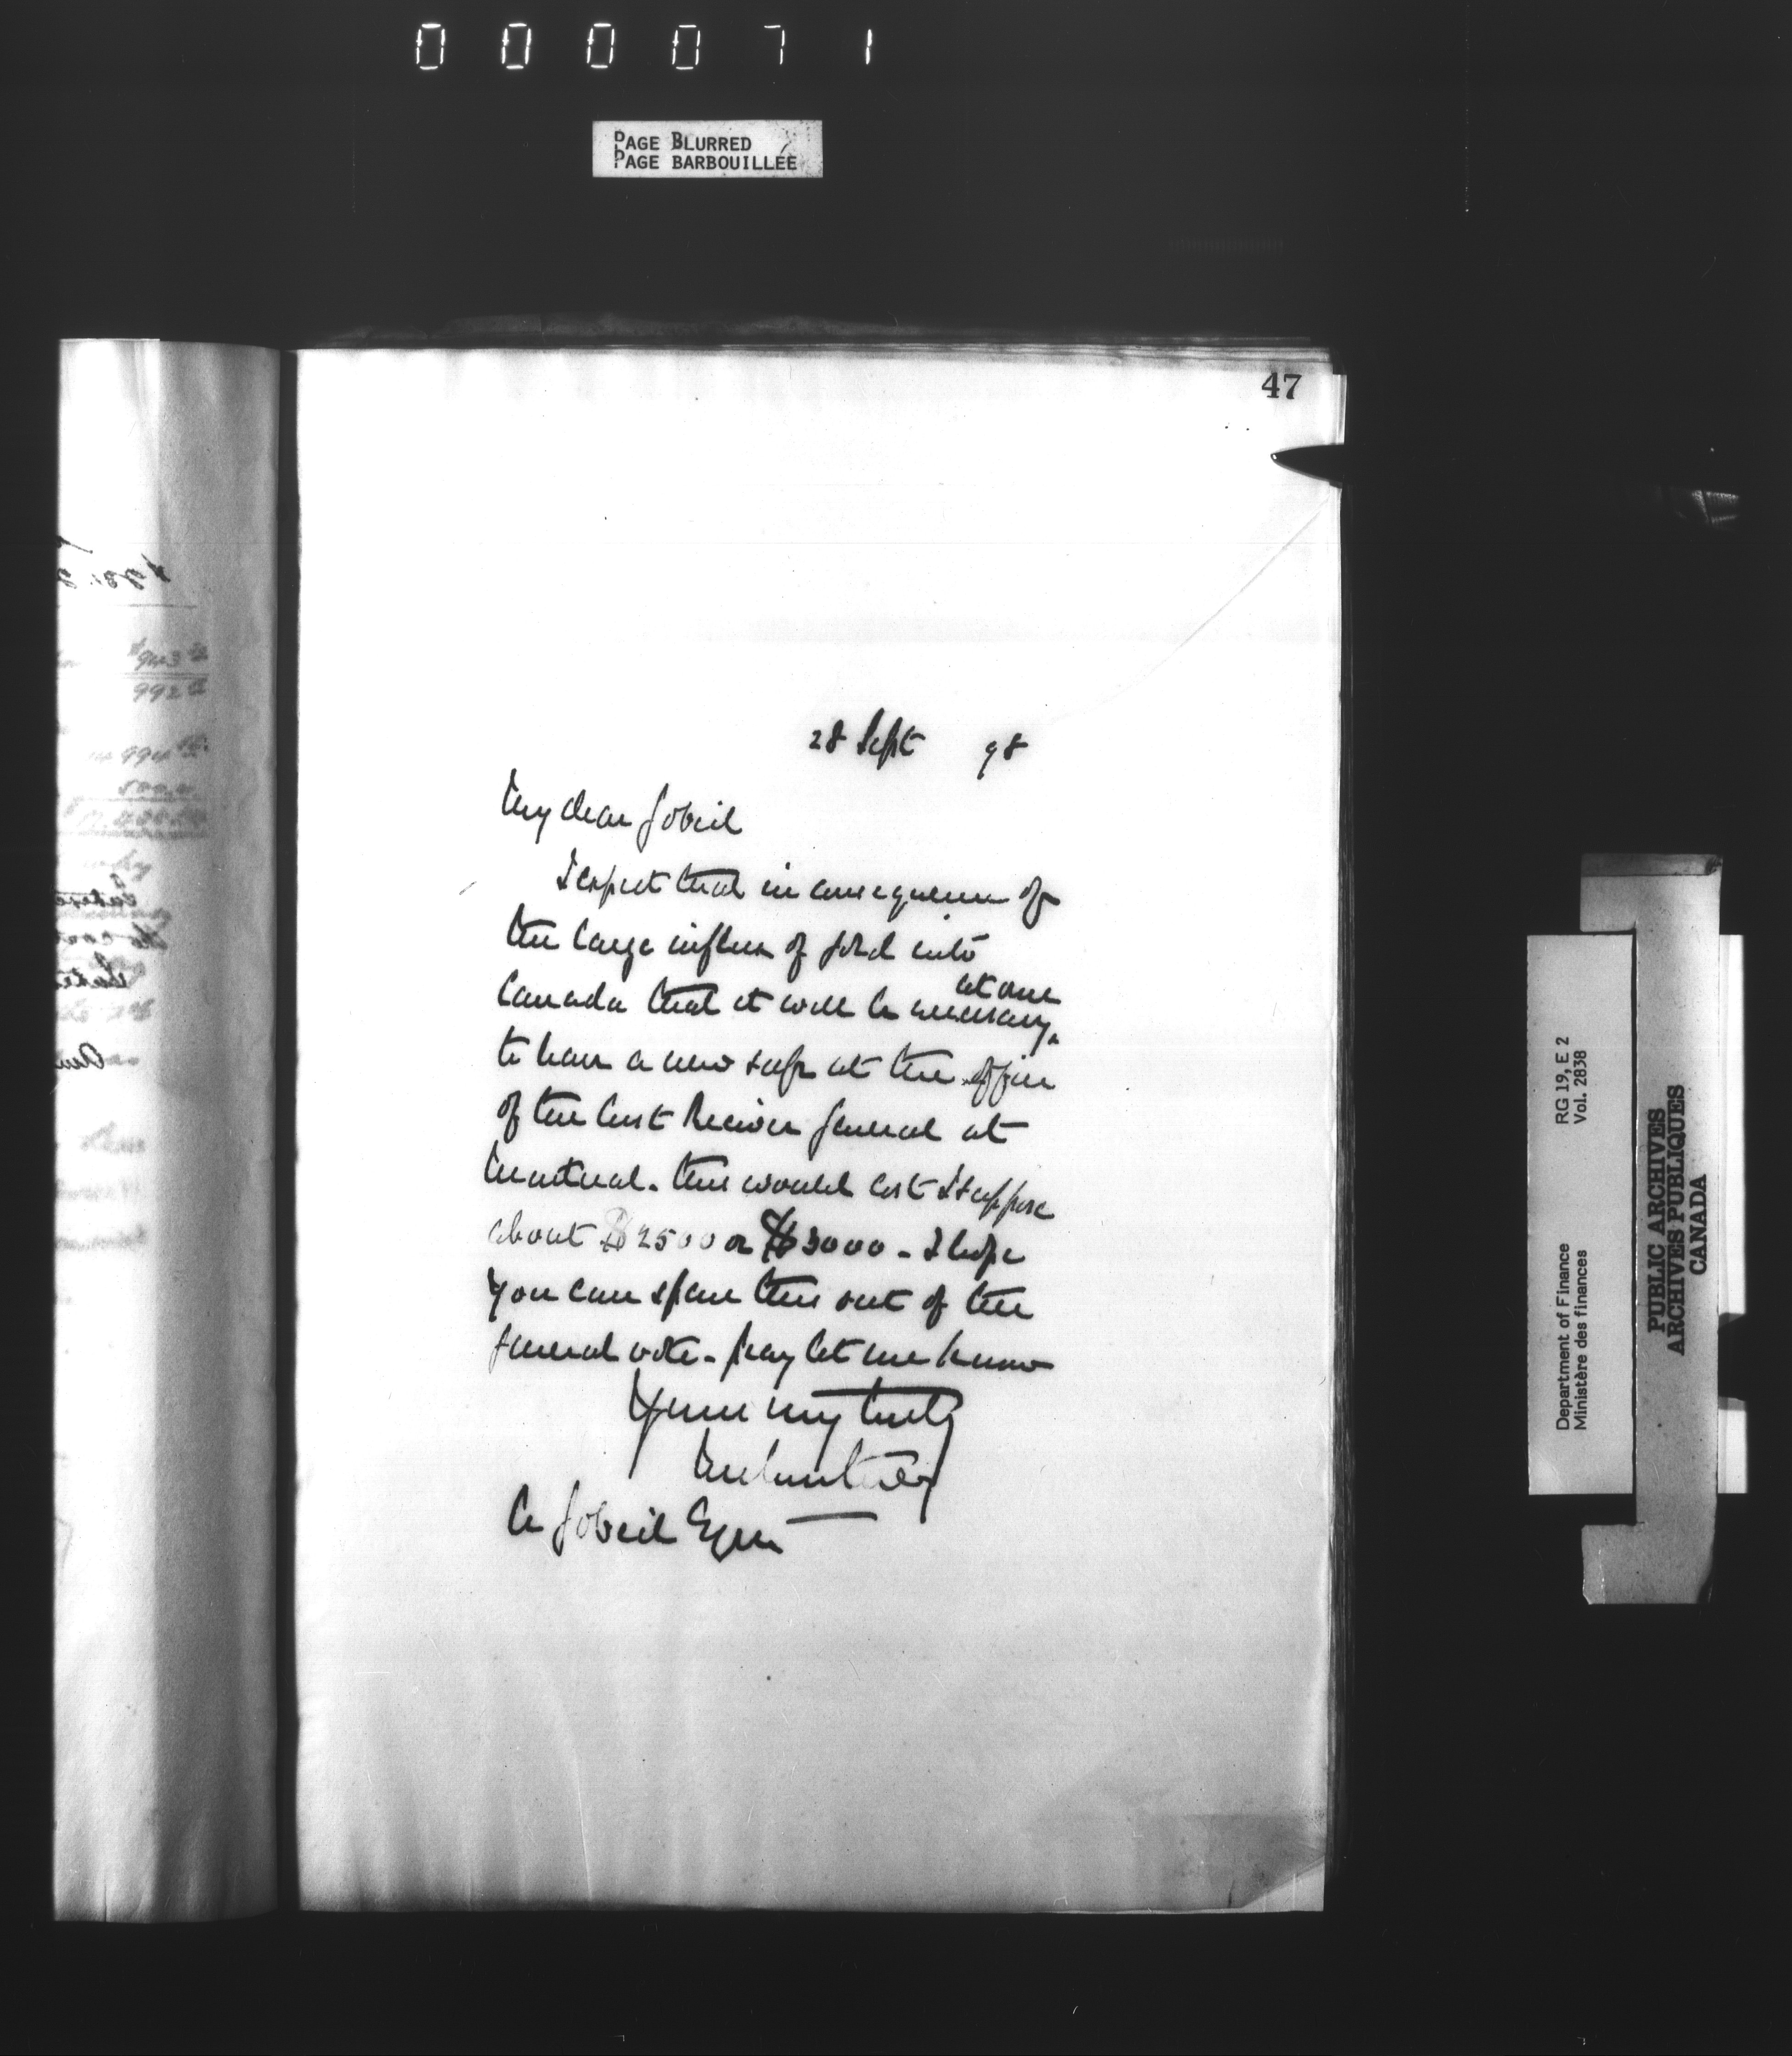 000071
PAGE BLURRED
PAGE BARBOUILLÉE
47
28 Sept 98
My dear Gobeil
I expect that in consequence of
the large influx of gold into
Canada that it will be necessary
at once
to have a new safe at the office
of the Asst Receiver General at
Montreal. This would cost I suppose
about $2500 or $3000 - I hope
you can spare this out of the
general vote - pray let me know
Yours very truly
A Gobeil Esqre
RG 19, E 2
Vol. 2838
Department of Finance
Ministère des finances
PUBLIC ARCHIVES
ARCHIVES PUBLIQUES
CANADA